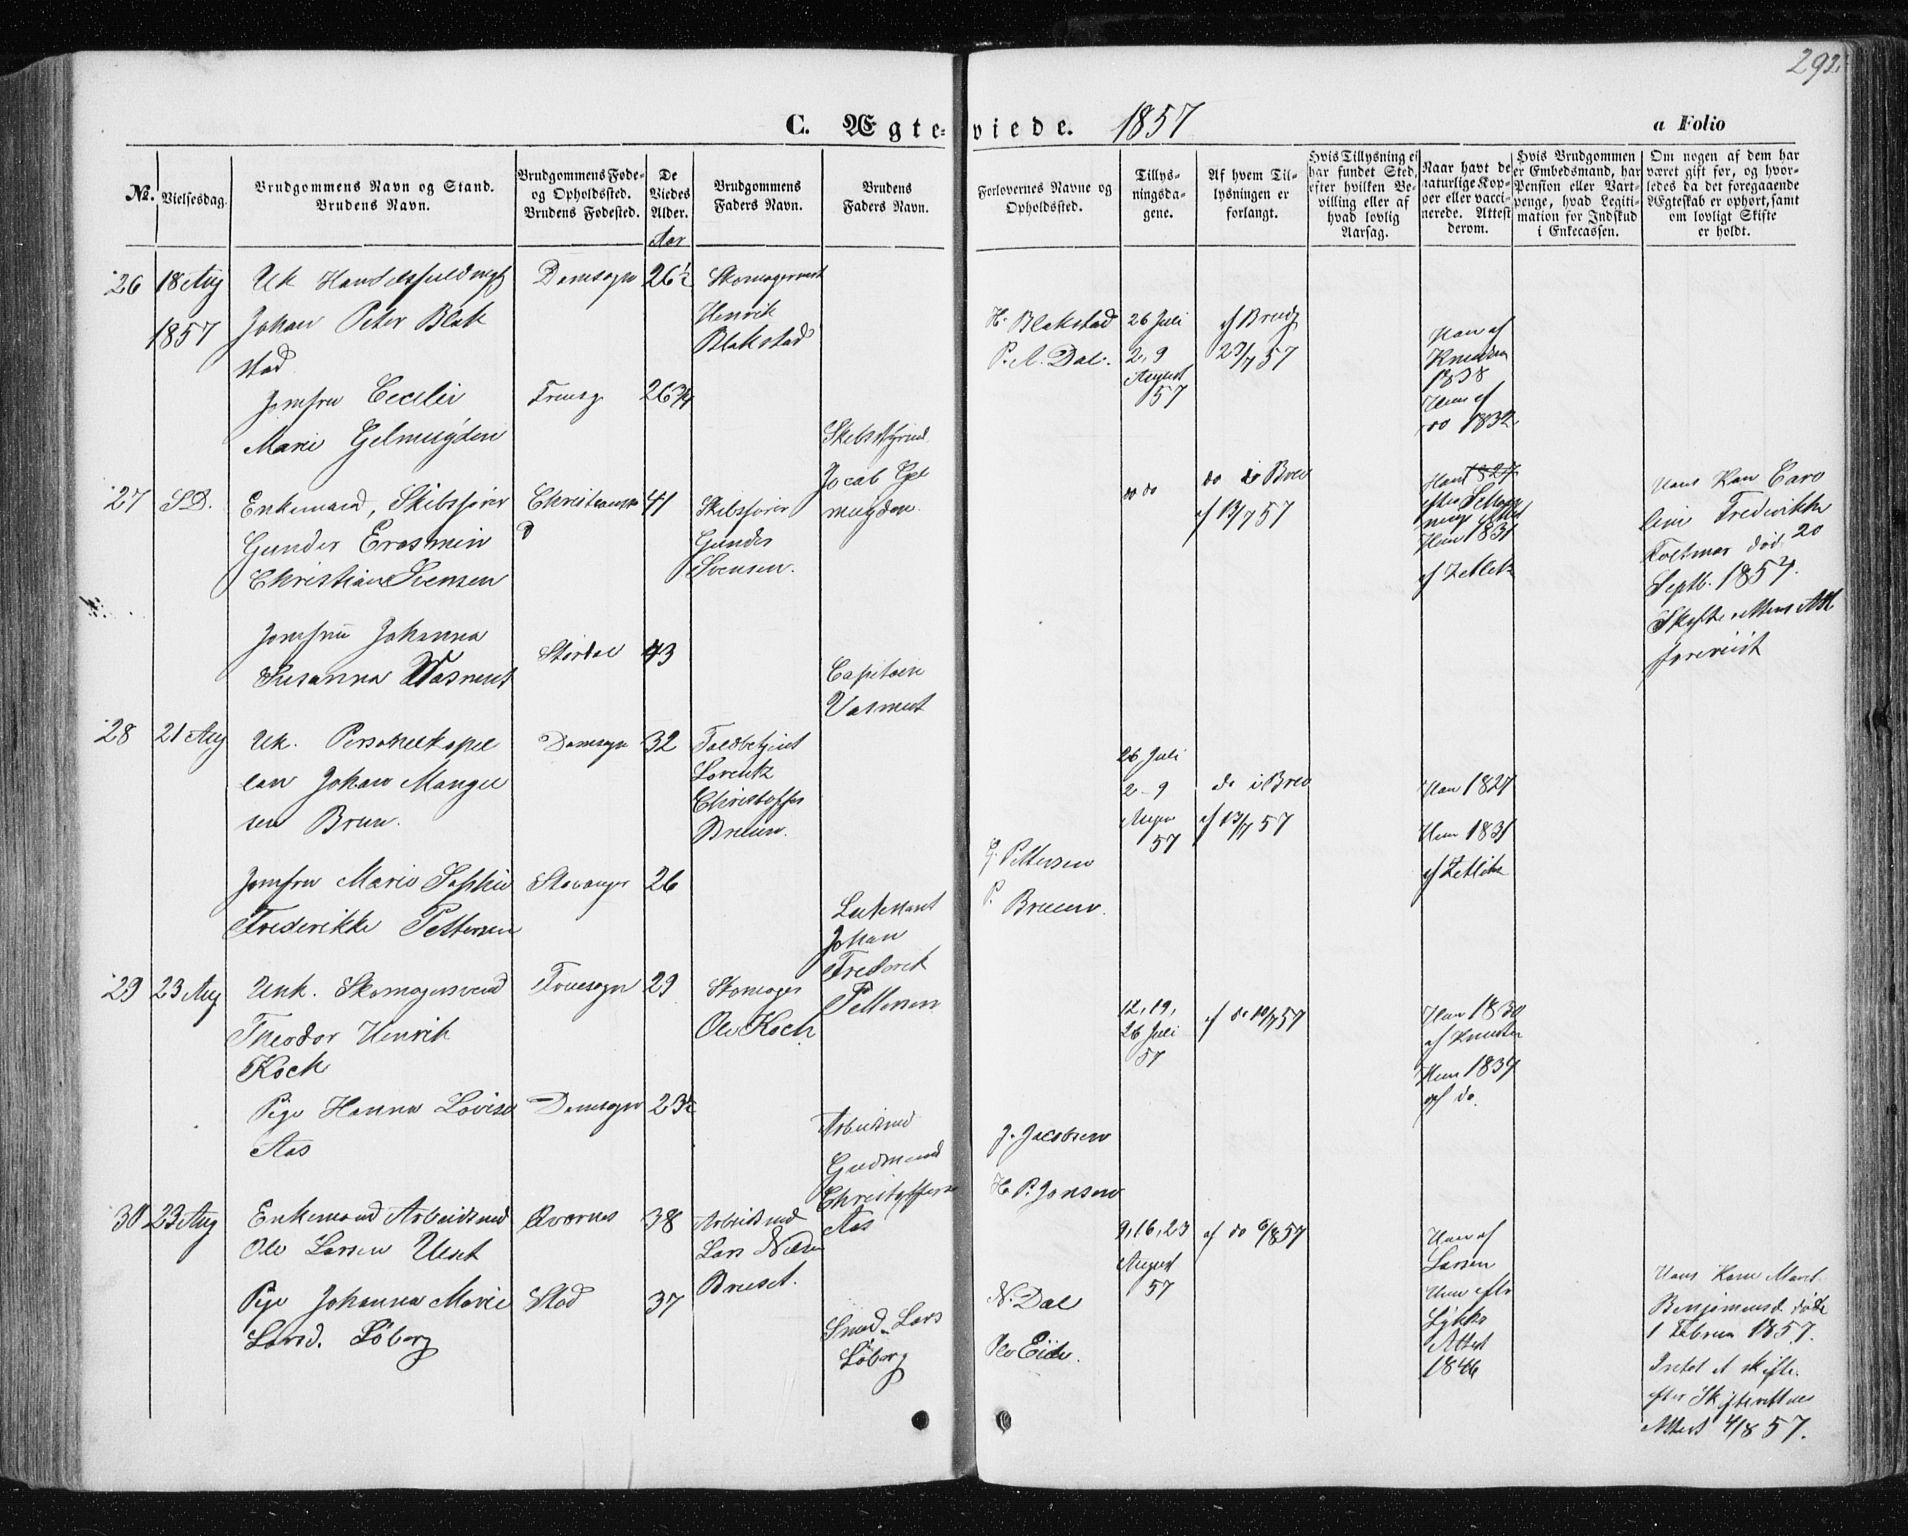 292
C. Ægteviede. 1857
a Folio
No.
Vielsesdag.
Brudgommens Navn og Stand.
Brudens Navn.
Brudgommens Føde-
og Opholdssted.
Brudens Fødested.
De
Viedes
Alder.
Aar
Brudgommens
Faders Navn.
Brudens
Faders Navn.
Forlovernes Navne og
Opholdssted.
Tillys-
ningsda-
gene.
Af hvem Til-
lysningen er
forlangt.
Hvis Tillysning ei
har fundet Sted,
efter hvilken Be-
villing eller af
hvad lovlig
Aarsag.
Naar havt de
naturlige Kop-
per eller vacci-
nerede. Attest
derom.
Hvis Brudgommen
er Embedsmand, har
Pension eller Vart-
penge, hvad Legiti-
mation for Indskud
i Enkecassen.
Om nogen af dem har
været gift før, og hvor-
ledes da det foregaaende
Ægteskab er ophørt, samt
om lovligt Skifte
er holdt.
26
18 Aug
1857
Uk Handelsfuldmægt
Johan Peter Blak
stad
Domsogn
26½
Henrik
Blakstad
H. Blakstad
P. A. Dal.
26 Juli
2, 9
August
57
af Brudg
23/7 57
Han af
Knudsen
1838
Hun af
do 1832
Jomfru Cecilie
Marie Gelmuyden
Fruesg
26¾
Jacob Gel
muyden
27
S.D.
Enkemand, Skibsfører
Gunder Erasmin
Christian Svensen
Christiansa
d
41
Skibsfører
Gunder
Svensen.
do do
do i Brev
af 13/7 57
Hun 1831
af Zetlitz
Hans Kone Caro
line Fredrikke
død 20
Septb. 1857.
forevist
Jomfru Johanna
Susanna Vasmut
Stordal
43
Capitain
Vasmut
28
21 Aug
Uk. Personelkapel
lan Johan Mangel
sen Brun.
Domsogn
32
Toldbetjent
Lorentz
Christoffer
Bruun.
26 Juli
2-9
August
57
do i Brev
af 13/7 57
Han 1827
Hun 1831
af Zetlitz
Jomfru Marie Sophie
Frederikke Pettersen
Stavanger
26
Lieutenant
Johan
Frederik
Pettersen
Pettersen
P. Bruun.
29
23 Aug
Unk. Skomagersvend
Theodor Henrik
Koch
Fruesogn
29
Skomager
Ole Koch
12, 19,
26 Juli
57
af do 10/7 57
Han 1830
af Knudsen
Hun 1837
af do.
Pige Hanna Lovise
Aas
Domsogn
23½
Arbeidsmd
Gudmund
Christoffersen
Aas
J. Jacobsen
H. P. Jonsen
30
23 Aug
Enkemand Arbeidsmd
Ole Larsen Uset
Qværnes
38
Arbeidsmd
Lars Nielsen
Bruset.
9, 16, 23
August
57
af do 6/8 57
Han af
Larsen
Hun efter
Lykke
Attest
1846
Hans Kone Maret
Benjaminsd. døde
1 Februar 1857.
Intet at skifte
efter Skifterettens
Attest 4/8 57.
Pige Johanna Marie
Larsd. Løberg
Stod
37
Smed Lars
Løberg
N. Dal
Ole Eide.